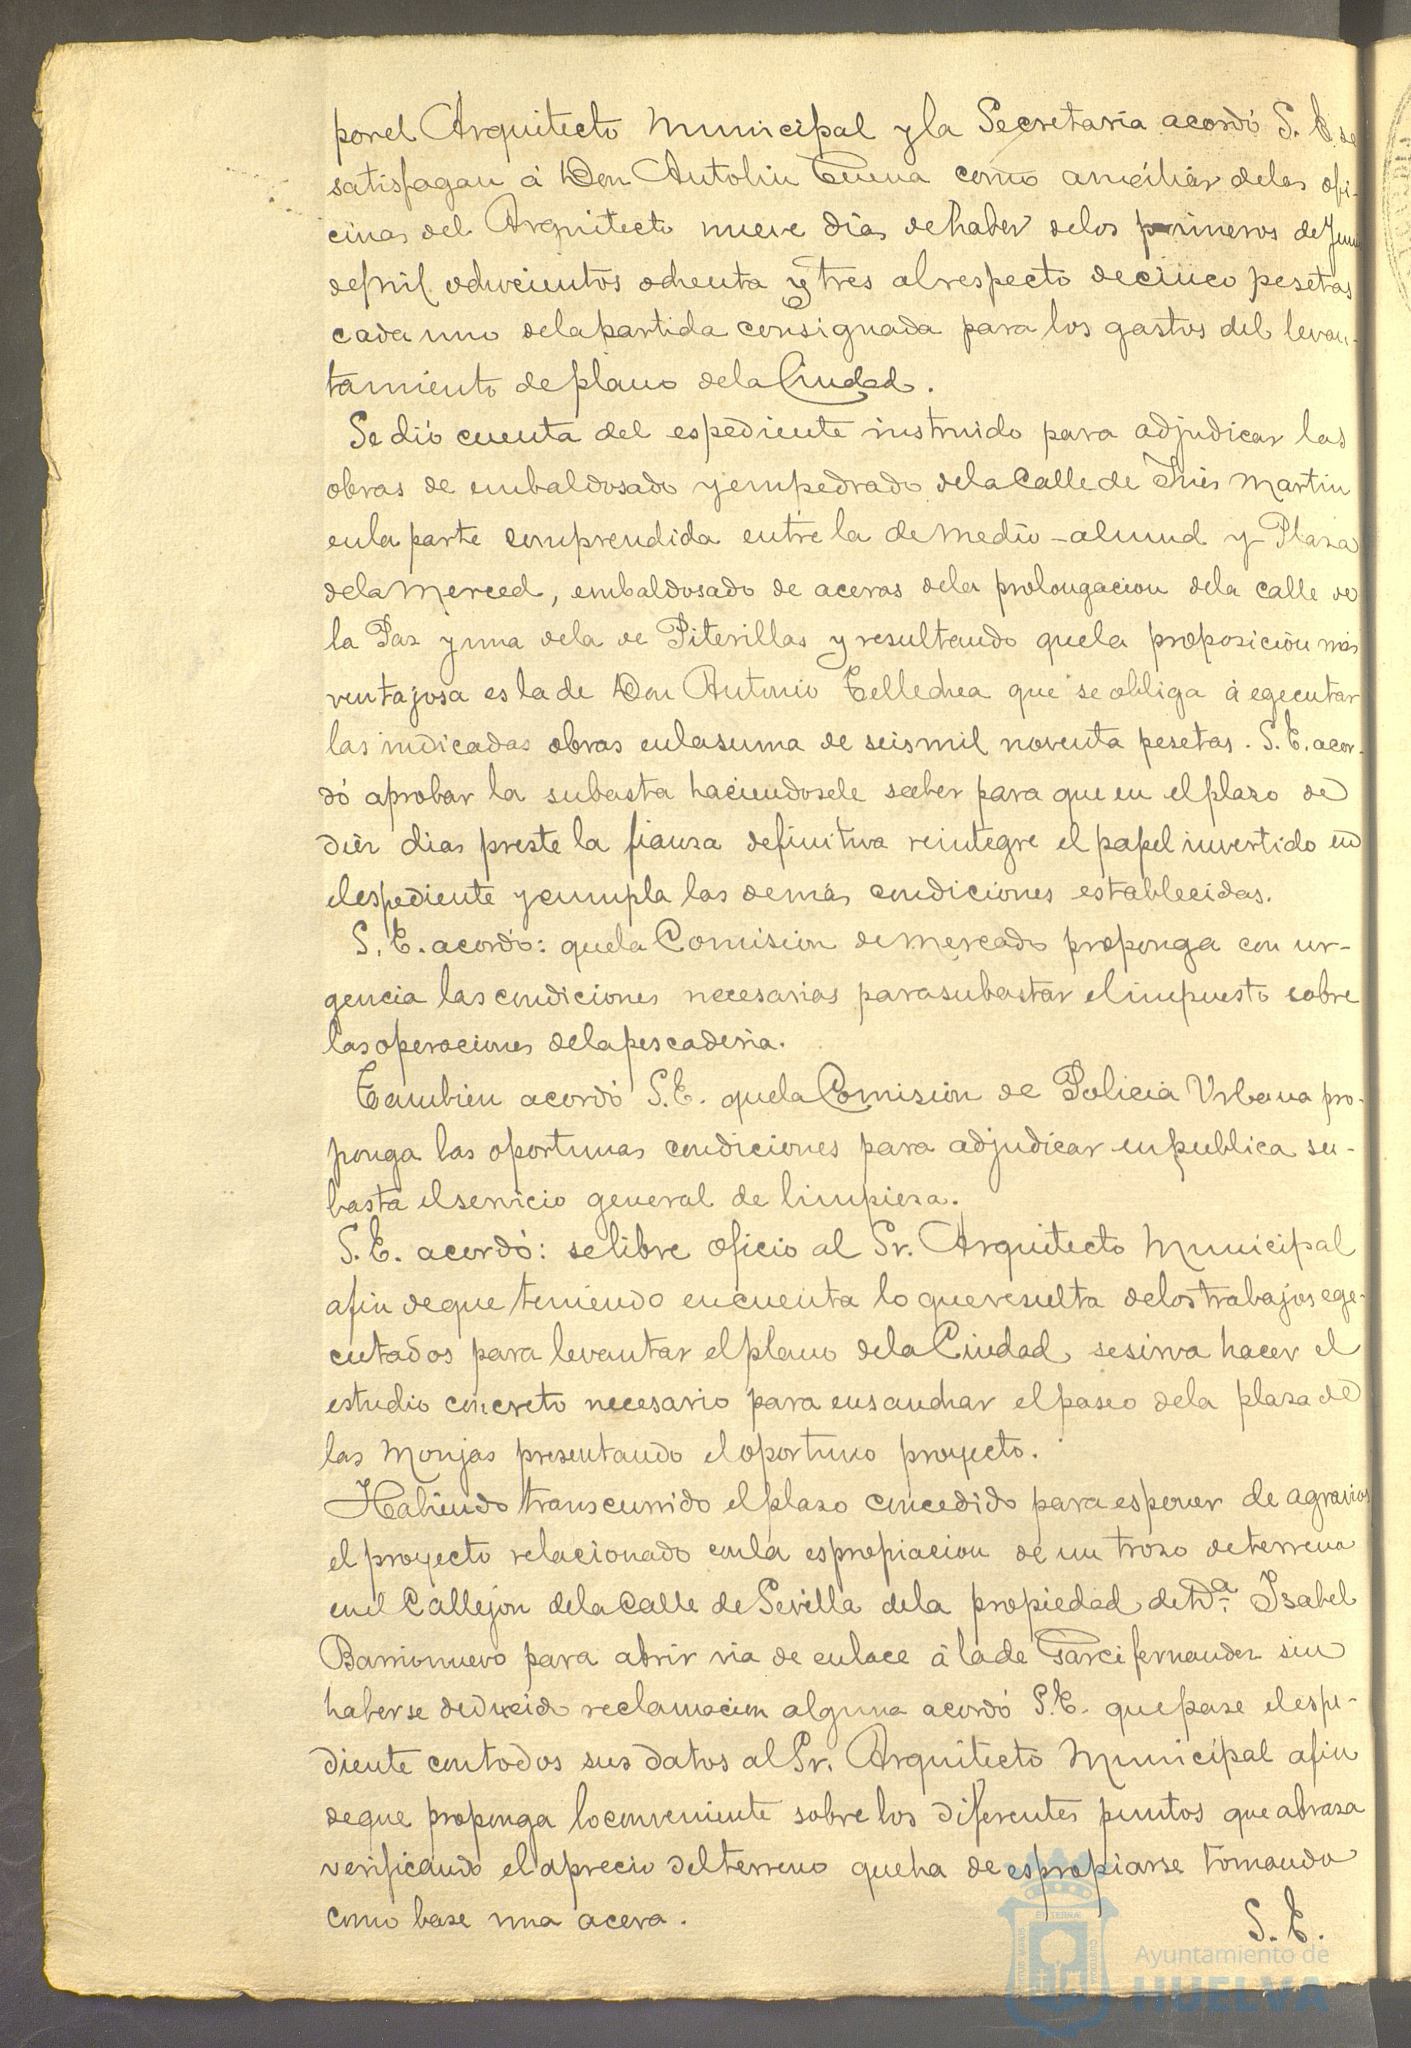 por el Arquitecto Municipal y la Secretaría acordó S. E. se
satisfagan á Don Antolin Cuena como auxiliar de las ofi-
cinas del Arquitecto nueve dias de haber de los primeros de Junio
de mil ochocientos ochenta y tres al respecto de cinco pesetas
cada uno de la partida consignada para los gastos del levan-
tamiento de plano de la Ciudad.
Se dió cuenta del espediente instruido para adjudicar las
obras de embaldosado y empedrado de la Calle de Inés Martin
en la parte comprendida entre la de Medio-almud y Plaza
de la Merced, embaldosado de aceras de la prolongacion de la calle de
la Paz y una de la de Piterillas y resultando que la proposición más
ventajosa es la de Don Antonio Tellechea que se obliga á egecutar
las indicadas obras en la suma de seis mil noventa pesetas. S. E. acor-
dó aprobar la subasta haciendosele saber para que en el plazo de
diez dias preste la fianza definitiva reintegre el papel invertido en
el espediente y cumpla las demás condiciones establecidas.
S. E. acordó: que la Comision de Mercado proponga con ur-
gencia las condiciones necesarias para subastar el impuesto sobre
las operaciones de la pescaderia.
Tambien acordó S. E. que la Comisión de Policia Urbana pro-
ponga las oportunas condiciones para adjudicar en publica su-
basta el servicio general de limpieza.
S. E. acordó: se libre oficio al Sr. Arquitecto Municipal
afin de que teniendo en cuenta lo que resulta de los trabajos ege-
cutados para levantar el plano de la Ciudad se sirva hacer el
estudio concreto necesario para ensanchar el paseo de la plaza de
las Monjas presentando el oportuno proyecto.
Habiendo transcurrido el plazo concedido para esponer de agravios
el proyecto relacionado con la espropiacion de un trozo de terreno
en el Callejon de la Calle de Sevilla de la propiedad de D.ª Isabel
Barrionuevo para abrir via de enlace á la de Garcifernandez sin
haberse deducido reclamacion alguna acordó S. E. que pase el espe-
diente con todos sus datos al Sr. Arquitecto Municipal afin
de que proponga lo conveniente sobre los diferentes puntos que abraza
verificando el aprecio del terreno que ha de espropiarse tomando
como base una acera.
S. E.
Ayuntamiento de
HUELVA